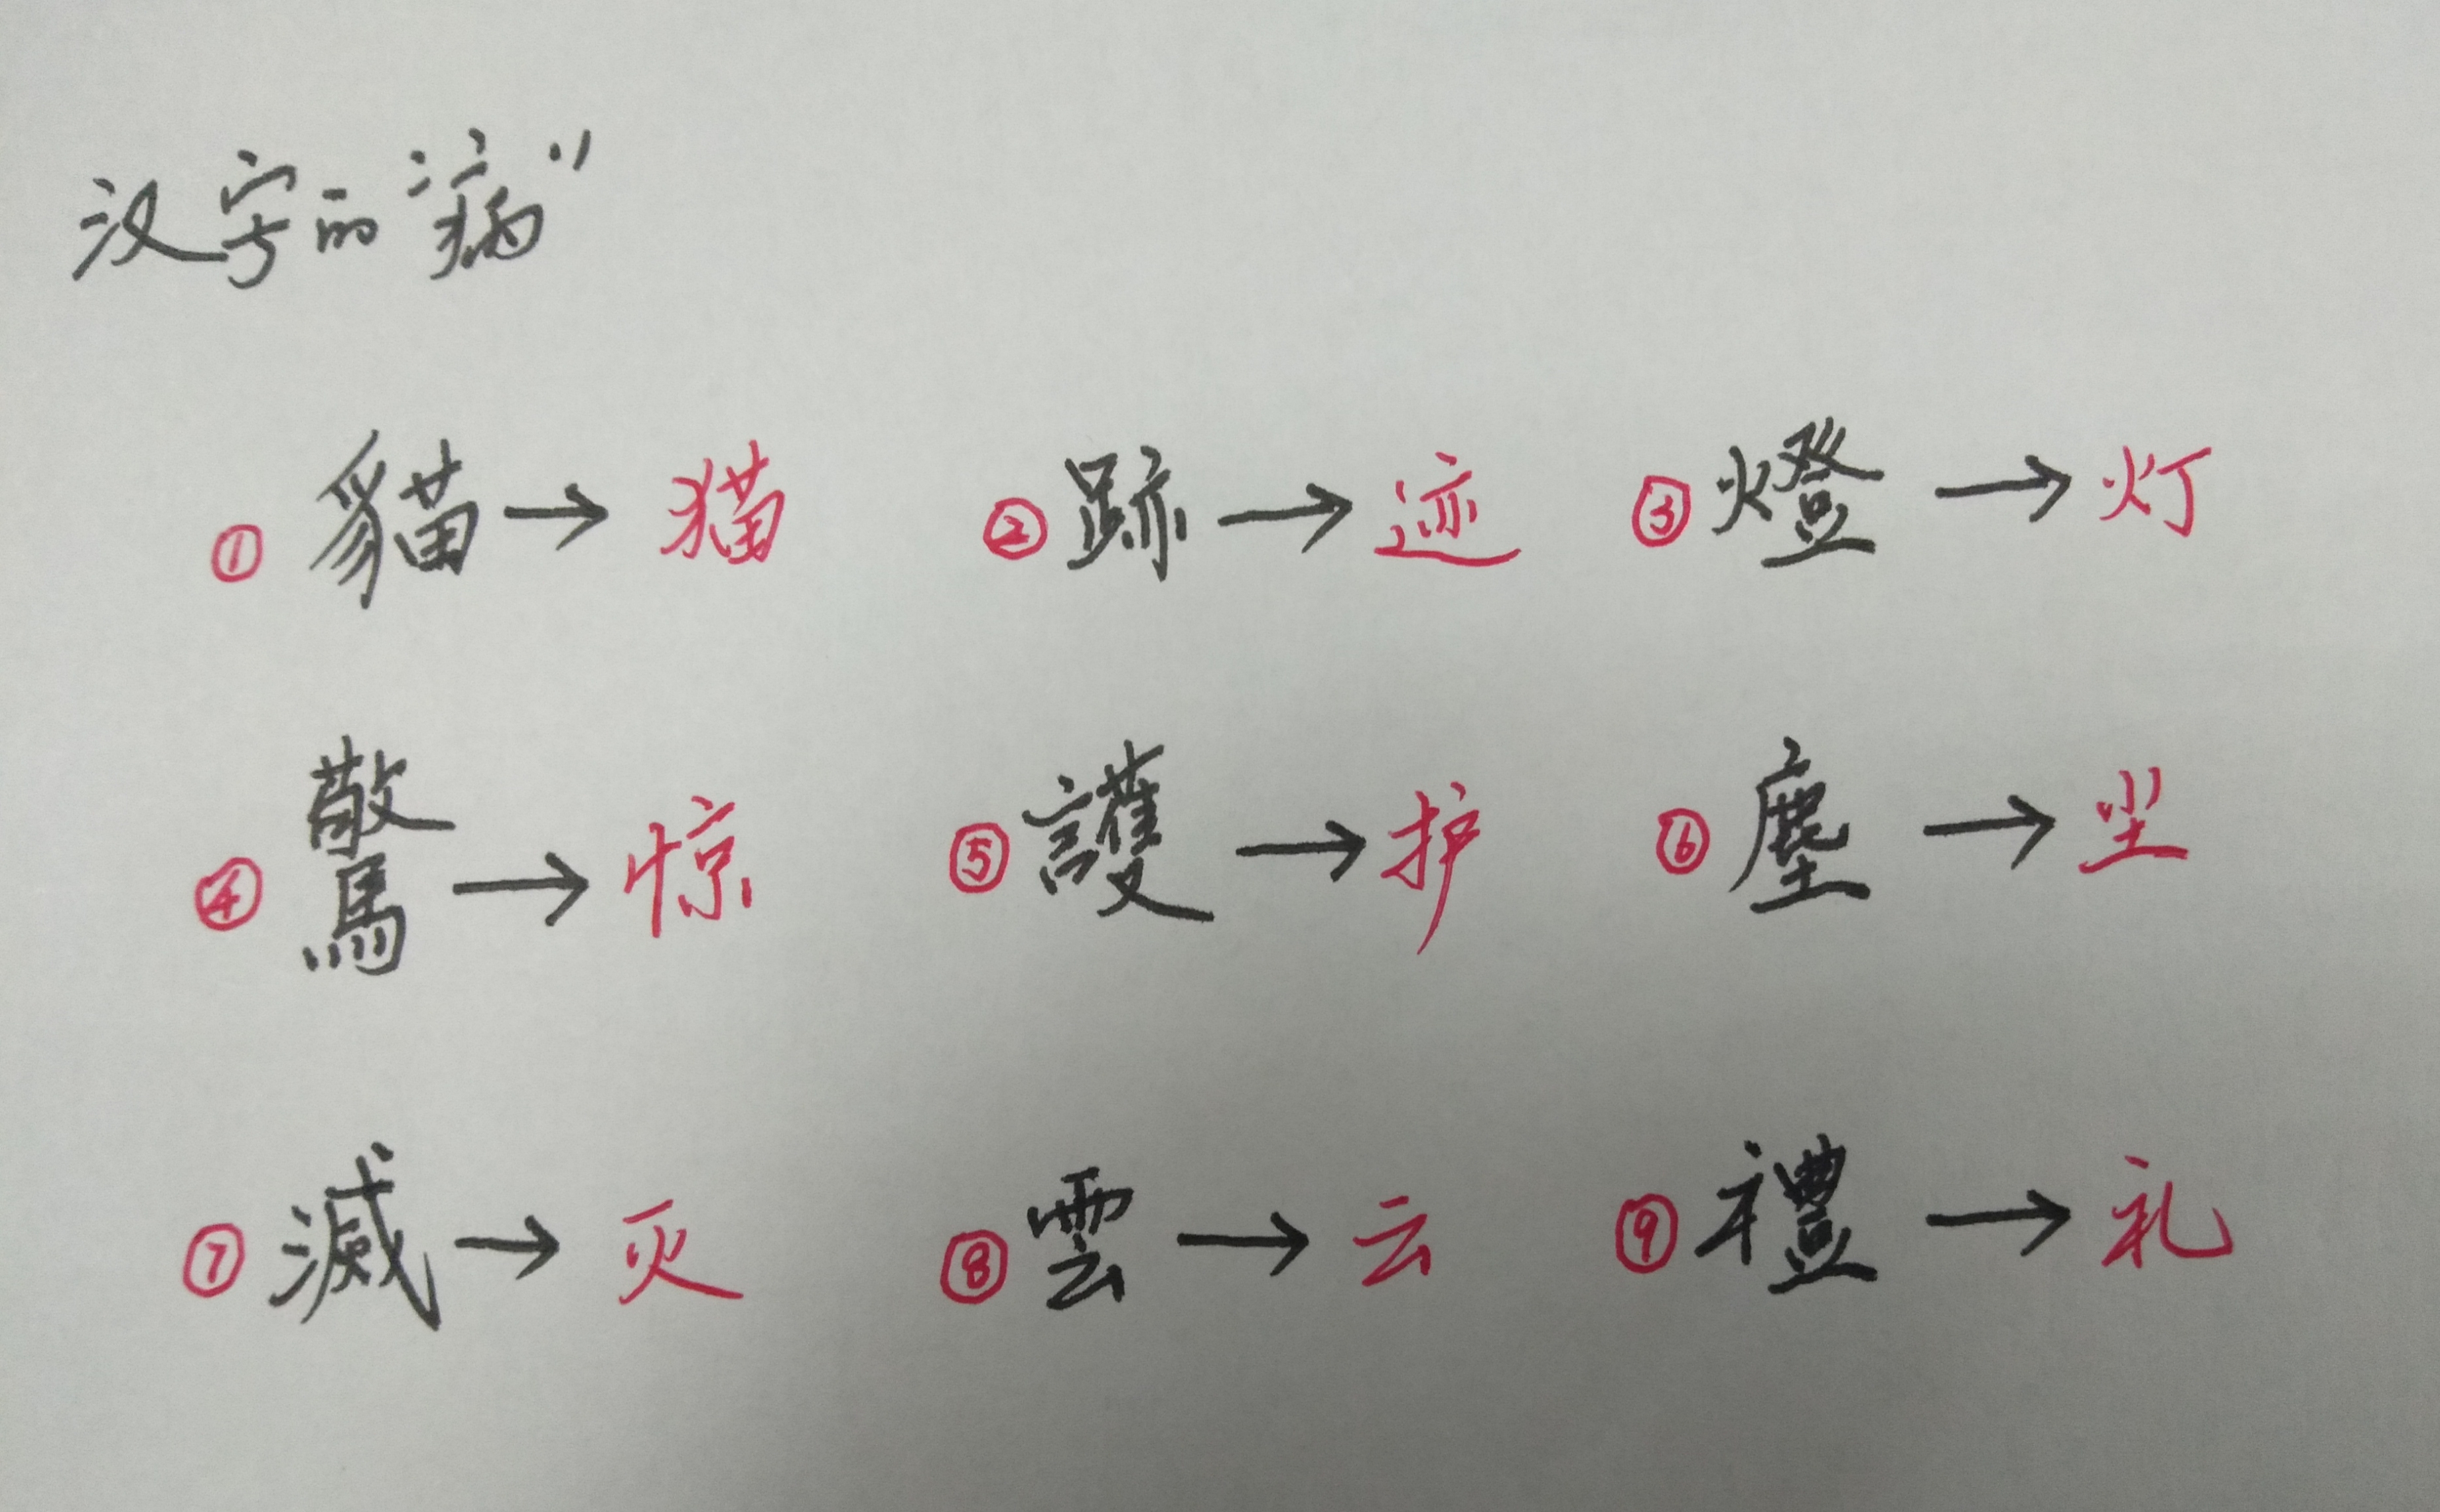 汉字的“病”
① 貓→猫 ② 跡→迹 ③ 燈→灯
④ 驚→惊 ⑤ 護→护 ⑥ 塵→尘
⑦ 滅→灭 ⑧ 雲→云 ⑨ 禮→礼